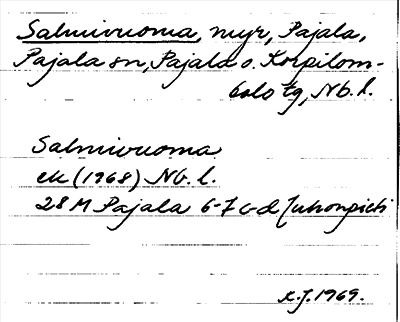 Salmivuoma, myr, Pajala,
Pajala sn, Pajala o. Korpilom-
bolo tg, Nb. l.
Salmivuoma
ek (1968) Nb. l.
28 M Pajala 6-7 c-d Juhonpieti
R.J. 1969.